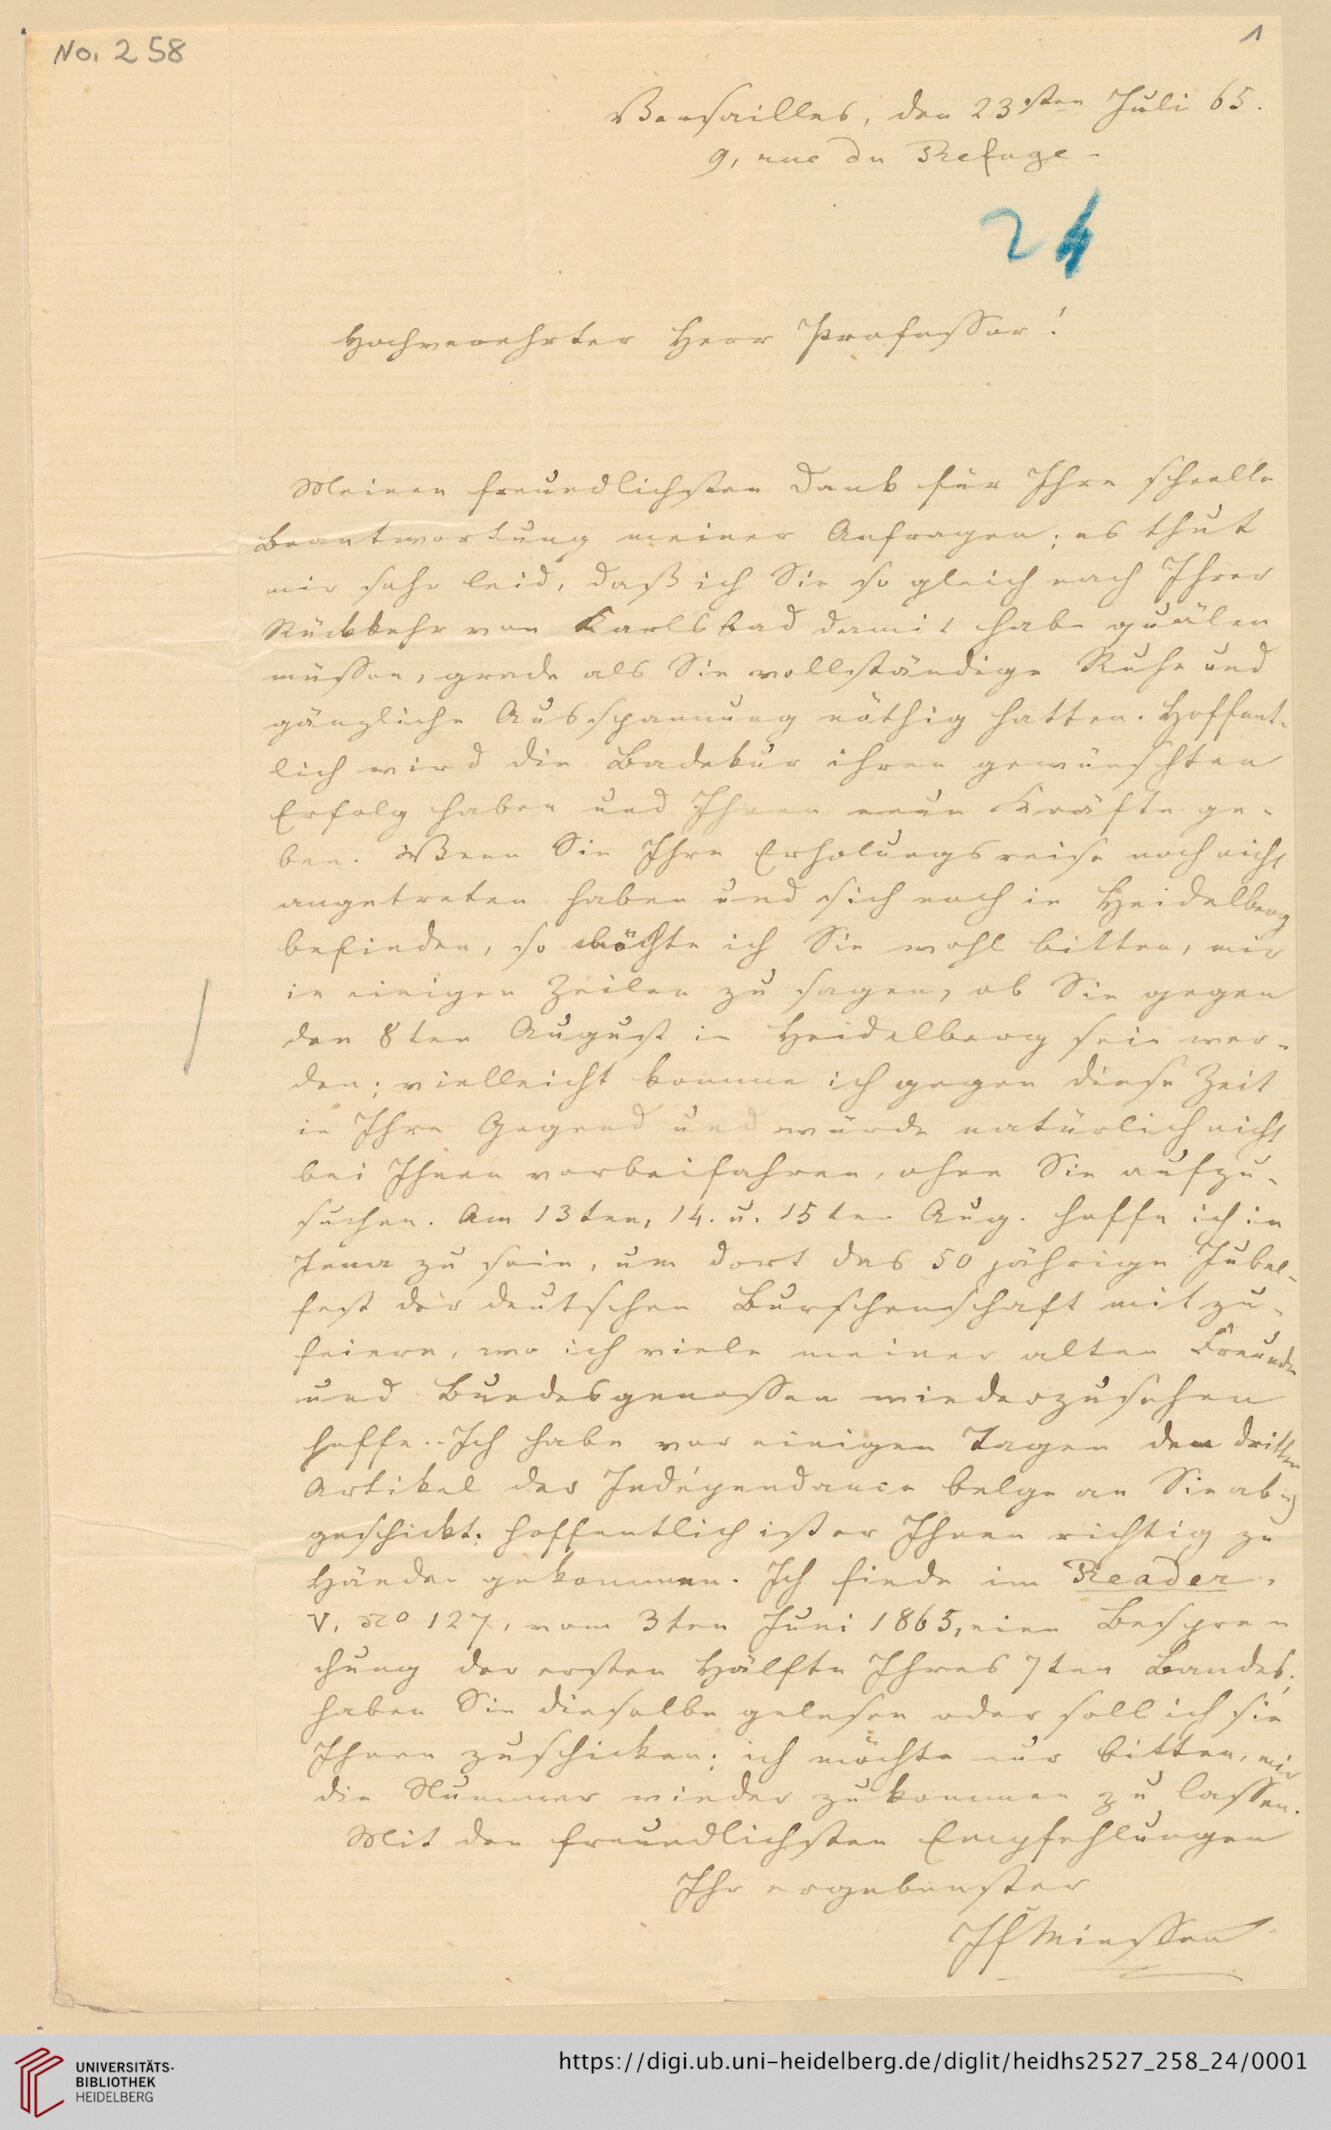 No. 258
1
Versailles, den 23sten Juli 65.
9, rue du Refuge -
24
Hochverehrter Herr Professor!
Meinen freundlichsten Dank für Ihre schnelle
Beantwortung meiner Anfragen; es thut
mir sehr leid, daß ich Sie so gleich nach Ihrer
Rückkehr von Karlsbad damit habe quälen
müssen, grade als Sie vollständige Ruhe und
gänzliche Ausspannung nöthig hatten. Hoffent-
lich wird die Badekur ihren gewünschten
Erfolg haben und Ihnen neue Kräfte ge-
ben. Wenn Sie Ihre Erholungsreise noch nicht
angetreten haben und sich noch in Heidelberg
befinden, so möchte ich Sie wohl bitten, mir
in einigen Zeilen zu sagen, ob Sie gegen
den 8ten August in Heidelberg sein wer-
den; vielleicht komme ich gegen diese Zeit
in Ihre Gegend und würde natürlich nicht
bei Ihnen vorbeifahren, ohne Sie aufzu-
suchen. Am 13ten, 14. u. 15ten Aug. hoffe ich in
Jena zu sein, um dort das 50 jährige Jubel-
fest der deutschen Burschenschaft mitzu-
feiern, wo ich viele meiner alten Freunde
und Bundesgenossen wiederzusehen
hoffe. - Ich habe vor einigen Tagen den dritten
Artikel der Indépendance belge an Sie ab-
geschickt; hoffentlich ist er Ihnen richtig zu
Händen gekommen. Ich finde im Reader,
V, No 127, vom 3ten Juni 1865, eine Bespre-
chung der ersten Hälfte Ihres 7ten Bandes;
haben Sie dieselbe gelesen oder soll ich sie
Ihnen zuschicken; ich möchte nur bitten, mir
die Nummer wieder zukommen zu lassen.
Mit den freundlichsten Empfehlungen
Ihr ergebenster
JF Minssen
UNIVERSITÄTS-
BIBLIOTHEK
HEIDELBERG
https://digi.ub.uni-heidelberg.de/diglit/heidhs2527_258_24/0001